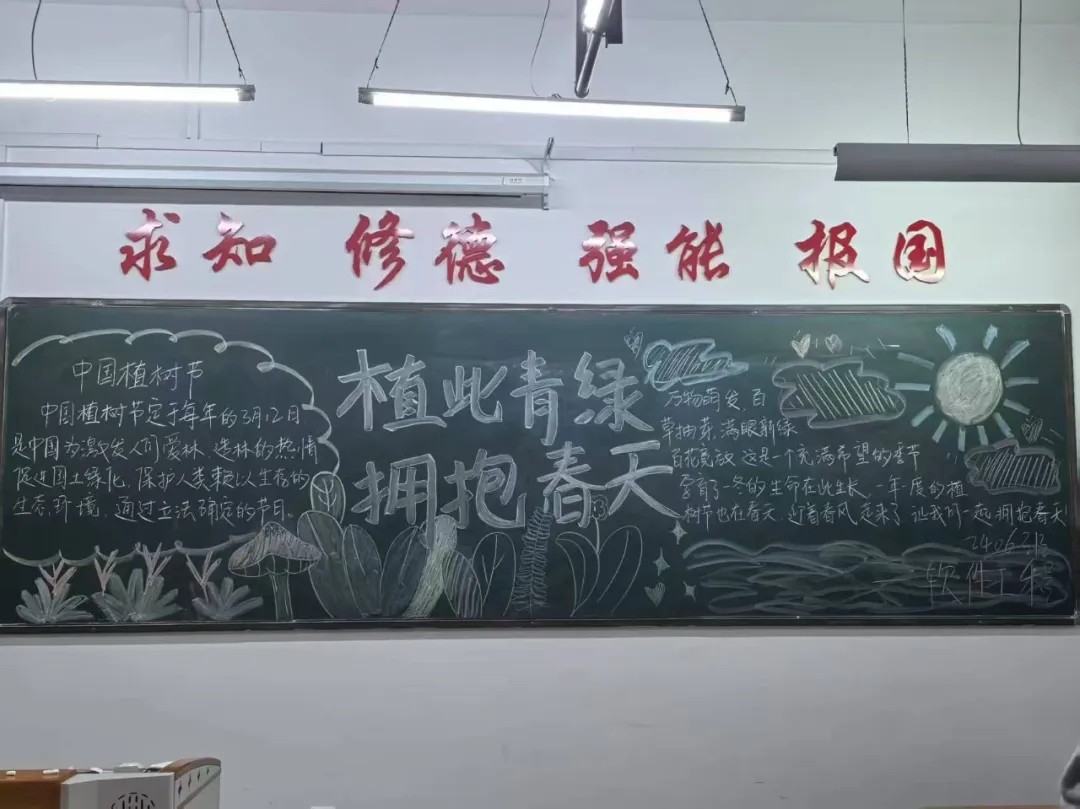 求知 修德 强能 报国
中国植树节
中国植树节定于每年的3月12日
是中国为激发人们爱林、造林的热情
促进国土绿化,保护人类赖以生存的
生态环境,通过立法确定的节日。
植此青绿
拥抱春天
万物萌发,百
草抽芽,满眼新绿
百花竞放 这是一个充满希望的季节
孕育了一冬的生命在此生长,一年一度的植
树节也在春天,迎着春风 走来了 让我们一起 拥抱春天!
2406
软件工程